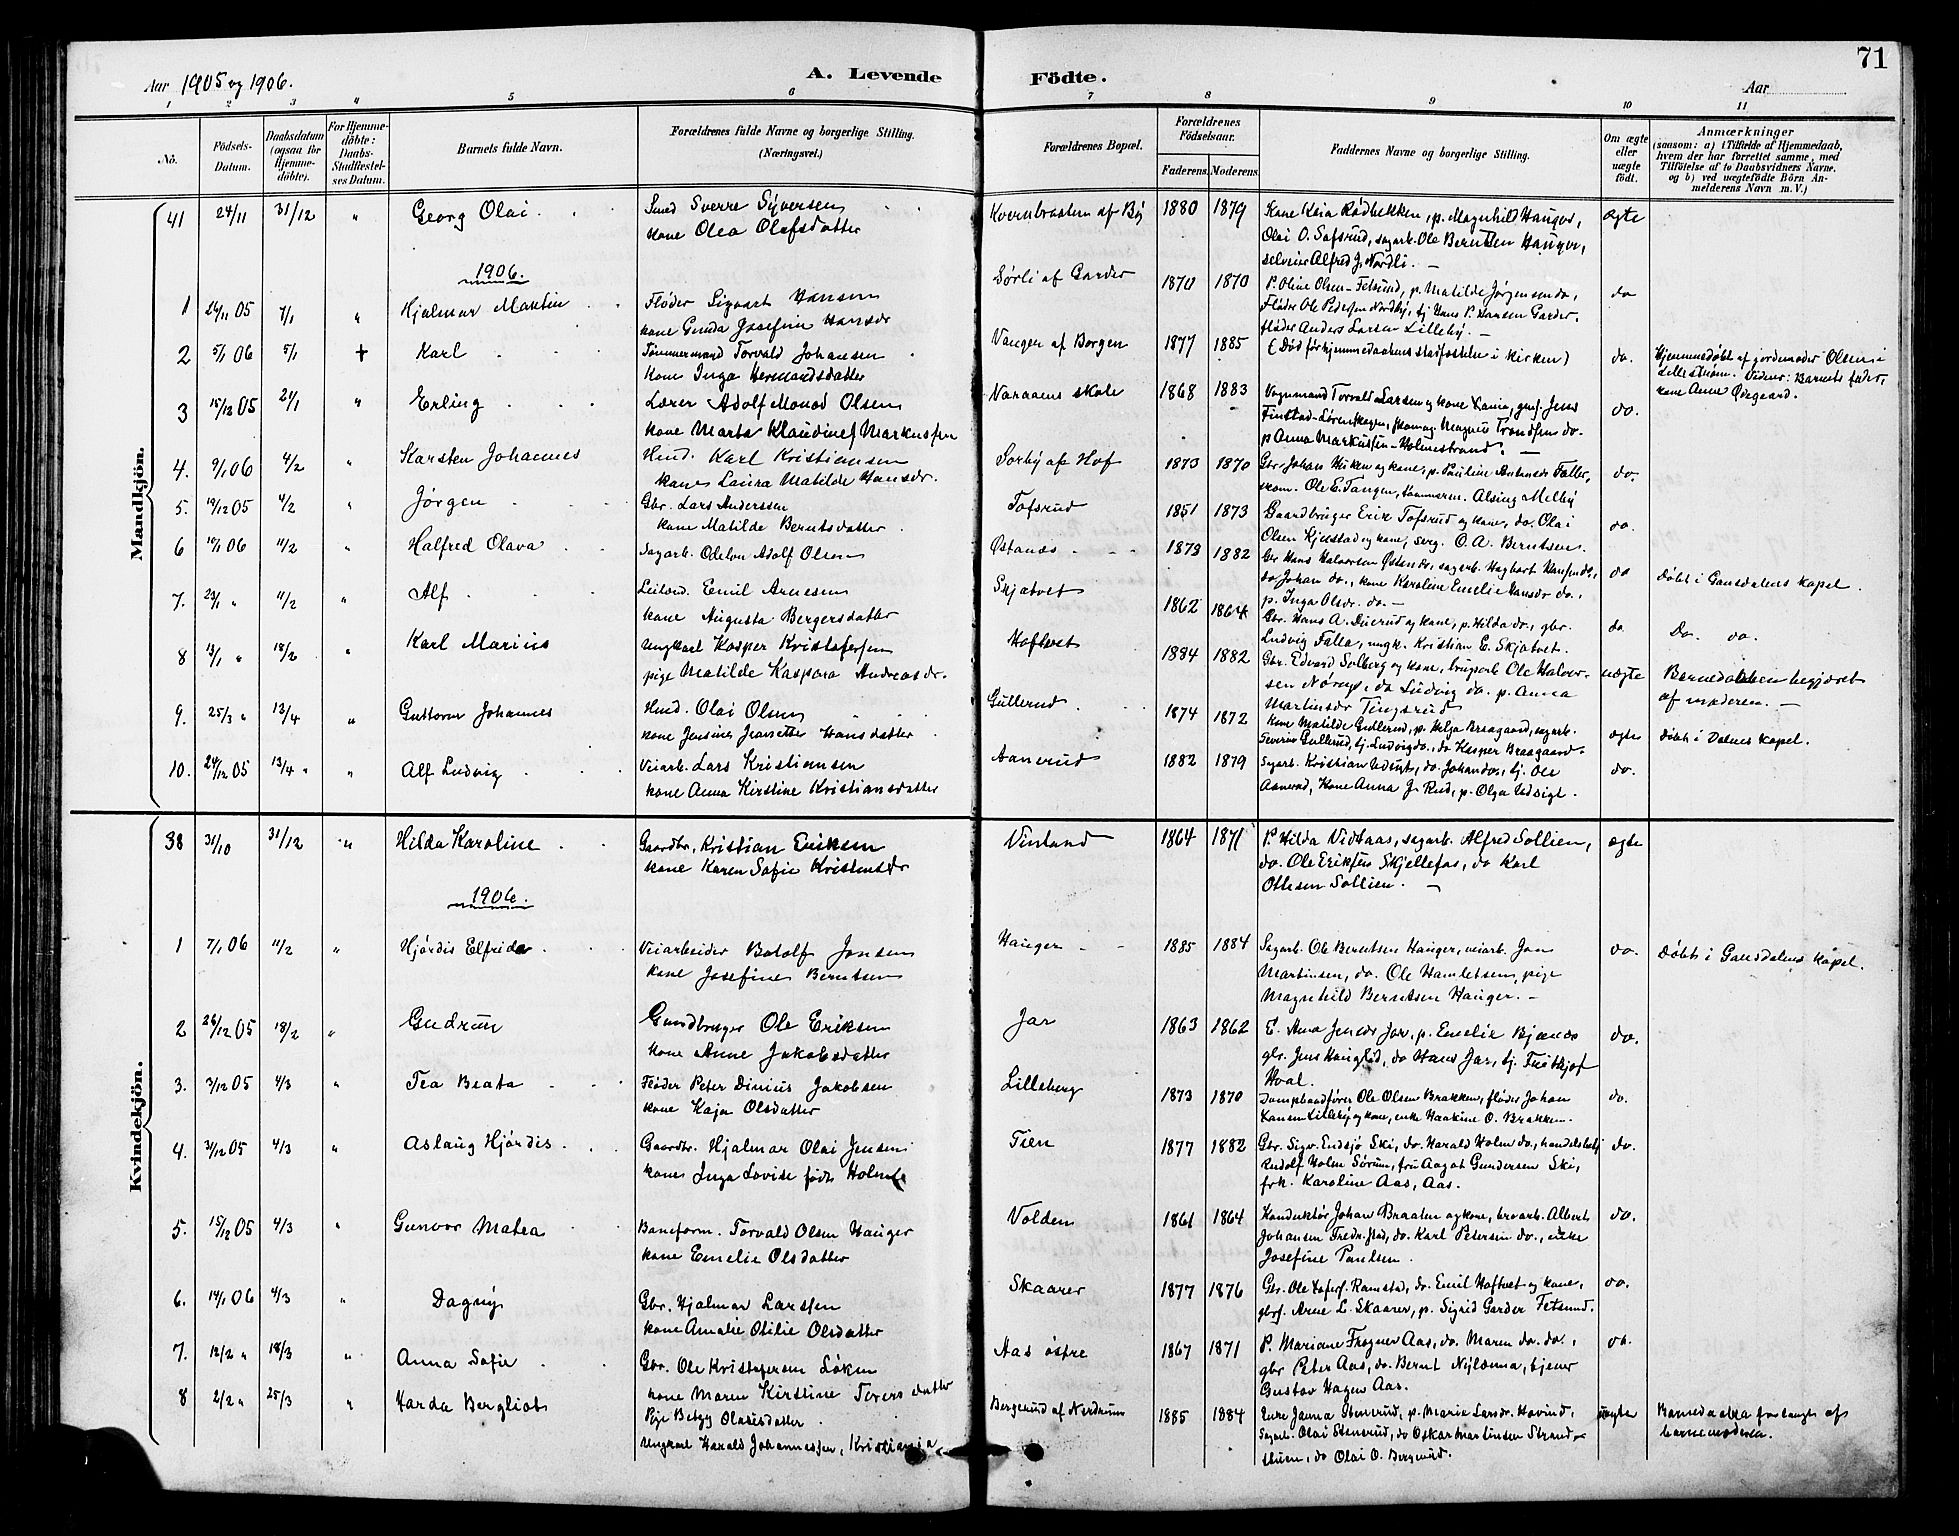 71
Aar 1905 og 1906.
A. Levende
Födte.
Aar
1 2 3 4 5 6 7 8 9 10 11
No.
Födsels-
Datum.
Daabsdatum
(ogsaa for
Hjemme-
döbte).
For Hjemme-
döbte:
Daabs-
Stadfæstel-
ses Datum.
Barnets fulde Navn.
Forældrenes fulde Navne og borgerlige Stilling.
(Næringsvei.)
Forældrenes Bopæl.
Forældrenes
Födselsaar.
Faderens.
Moderens.
Faddernes Navne og borgerlige Stilling.
Om ægte
eller
uægte
födt.
Anmærkninger
(saasom: a) i Tilfælde af Hjemmedaab,
hvem der har forrettet samme, med
Tilföielse af to Daabsvidners Navne,
og b) ved uægtefödte Börn An-
melderens Navn m. V.)
Mandkjön.
41 24/11 31/12 " Georg Olai Smed Sverre Syversen 1880 1879 Kone Kaia Rødbekken, p. Magnhild Hauger, ægte
kone Olea Olafsdatter Olai O. Tofsrud, sagarb. Ole Berntsen Hauger,
selveier Alfred J. Nordli. —
1906.
1 24/11 05 7/1 " Hjalmar Martin Fløder Sigvart Hansen Sørli af Garder 1870 1870 P. Oline Olsen - Fetsund, p. Matilde Jørgensen do, do
kone Gunda Josefine Hansdr Fløder Ole Pedersen Nordby, tj Hans P. Hansen Garder,
fløder Anders Larsen Lilleby. —
2 5/1 06 5/1 + Karl Tømmermand Torvald Johansen Vanger af Borgen 1877 1885 (Død før hjemmedaabens stadfæstelse i kirken) do. Hjemmedøbt af jordemoder Olsen i
kone Inga Hermandsdatter Lillestrøm. Vidner: Barnets fader,
kone Anne Ødegaard.
3 15/12 05 21/1 " Erling Lærer Adolf Monod Olsen Varaaens skole 1868 1883 Vognmand Torvald Larsen og kone do.
kone Marta Klaudine f Markussen
p Anna Markussen - Holmestrand. —
4. 9/1 06 4/2 " Karsten Johannes Hmd. Karl Kristiansen Sorby af Hof 1873 1870 do.
kone Laura Matilde Hansdr. skom. Ole E. Tangen, Alsing Melby
5. 19/12 05 4/2 " Jørgen Gbr. Lars Anderssen Tofsrud 1851 1873 Gaardbruger Erik Tofsrud og kone, do. Olai do.
kone Matilde Berntsdatter. Olsen Kjelstad og kone, O. A. Berntsen.
6 10/1 06 11/2 " Halfred Olava Sagarb. Odelon Adolf Olsen Østanes 1873 1882 Gbr Hans Halvorsen sagarb. Hagbart Hansen do, do Døbt i Gansdalens kapel.
do Johan do., kone Karoline Emelie Hansdr do.,
p. Inga Olsdr. do. —
7. 23/1 " 11/2 " Alf Emil Arnesen Skjatvet 1862 1864 Gbr. Hans A. Duerud og kone, p. Hilda do., gbr. do Do. do.
kone Augusta Bergersdatter Ludvig Falla, ungk. Kristian E. Skjatvet.
8 13/1 " 18/2 " Karl Marius Ungkarl Kasper Kristofersen Hoftvet 1884 1882 Gbr. Edvard Solberg og kone, brugsarb Ole Halvor- uægte Barnedaaben begjæret
pige Matilde Kaspara Andreasdr. sen Nordby, do Ludvig do. p. Anna af moderen. —
Martinsdr Tingsrud
9. 25/3 " 13/4 " Guttorm Johannes Hmd. Olai Olsen Gullerud 1874 1872 Kone Matilde Gullerud, p. Helga Braagaard, sagarb. ægte Døbt i Dalnes kapel.
kone Jensine Jeanette Hansdatter Severin Gullerud, tj. Ludvig do., do Kasper Braagaard.
10. 24/12 05 13/4 " " Alf Ludvig Veiarb. Lars Kristiansen Aanerud 1882 1879 Sagarb. Kristian Udsigt, do. Johan do., tj. Ole do.
kone Anna Kirstine Kristiansdatter Aanerud, Kone Anna J. Rud, p. Olga Udsigt.
Kvindekjön.
38 31/10 31/12 " Hilda Karoline Gaardbr. Kristian Eriksen Vinland 1864 1871 P. Hilda Vidtaas, sagarb. Alfred Sollien, ægte
kone Karen Sofie Kristensdr do. Ole Eriksen Skjellefos, do Karl
Ottesen Sollien. —
1906.
1 7/1 06 11/2 " Hjördis Elfrida Veiarbeider Botolf Jensen Hauger 1885 1884 Sagarb. Ole Berntsen Hauger, veiarb. Jon do. Døbt i Gansdalens kapel.
kone Josefine Berntsen Martinsen, do. Ole Hamletsen, pige
Magnhild Berntsen Hauger. —
2 26/12 05 18/2 " Gudrun Gaardbruger Ole Eriksen Jar 1863 1862 E. Anna Jensdr Jar, p. Emelie Bjanes do.
kone Anne Jakobsdatter gbr. Jens Hauglid, do Hans Jar, tj. Fridthjof
Hval.
3. 3/12 05 4/3 " Tea Beata Fløder Peter Dinius Jakobsen Lilleberg 1873 1870 Dampbaadfører Ole Olsen Brakken, fløder Johan do.
kone Kaja Olsdatter Hansen Lilleby og kone, enke Haakine O. Brakken.
4. 31/12 05 4/3 " Aslaug Hjórdis Gaardbr. Hjalmar Olai Jensen Tien 1877 1882 Gbr. Sigv. Endsjø Ski, do. Harald Holm do., do.
kone Inga Lovise født Holm Rudolf Holm Sørum, fru Aagot Gundersen Ski,
frk. Karoline Aas, Aas.
5. 15/12 05 4/3 " Gunvor Matea Baneform. Torvald Olsen Hauger Volden 1861 1864 Konduktør Johan Braaten og kone, Albert do.
kone Emelie Olsdatter Johansen Fredr.stad, do. Karl Petersen do., enke
Josefine Paulsen.
6. 14/1 06 4/3 " Dagny Gbr. Hjalmar Larssen Skaarer 1877 1876 Gbr. Ole Ramstad, do. Emil Hoftvet og kone, do.
kone Amalie Otilie Olsdatter gbrs. Arne L. Skaarer, p. Sigrid Garder Fetsund.
7. 12/2 " 18/3 " Anna Sofie Gbr. Ole Kristofersen Løken Aas østre 1867 1871 P. Mariane Frogner Aas, do. Maren do. do., do.
kone Maren Kirstine Toversdatter gbr Peter Aas, do. Bernt Nylænna, tjener
Gustav Hagen Aas.
8 2/2 " 25/3 " Harda Bergliot Pige Betzy Olausdatter. Bergerud af Nordrum 1885 1884 Enke Janna Stensrud, p. Marie Larsdr. Hovind, uægte Barnedaaben forlangt af
Ungkarl Harald Johannessen, Kristiania Sagarb. Olai Stensrud, do Oskar Martinsen Strand- barnemoderen.
stuen, do Olai O. Bergerud.